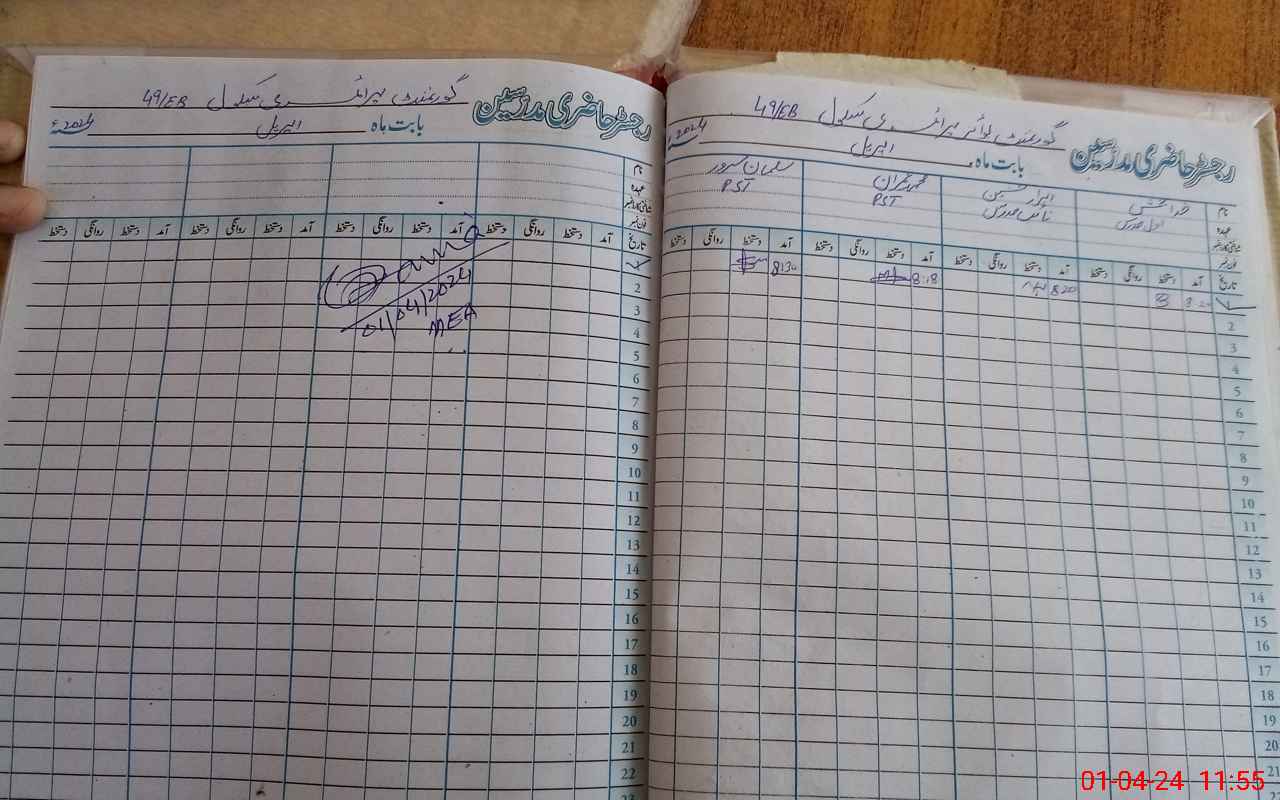 رجسٹر حاضری مدرسین گورنمنٹ بوائز پرائمری سکول 49/EB
بابت ماہ اپریل 2024ء
نام خدا بخش ابرار حسین محمد عمران سلمان سرور
عہدہ اول مدرس نائب مدرس PST PST
شناختی کارڈ نمبر
فون نمبر
تاریخ آمد دستخط روانگی دستخط آمد دستخط روانگی دستخط آمد دستخط روانگی دستخط آمد دستخط روانگی دستخط
1 8:20 8:18 8:30
2
3
4
5
6
7
8
9
10
11
12
13
14
15
16
17
18
19
20
21
رجسٹر حاضری مدرسین گورنمنٹ پرائمری سکول 49/EB
بابت ماہ اپریل 2024ء
نام
عہدہ
شناختی کارڈ نمبر
فون نمبر
تاریخ آمد دستخط روانگی دستخط آمد دستخط روانگی دستخط آمد دستخط روانگی دستخط آمد دستخط روانگی دستخط
1
2
01/04/2024
3
MEA
4
5
6
7
8
9
10
11
12
13
14
15
16
17
18
19
20
21
22
23
01-04-24 11:55